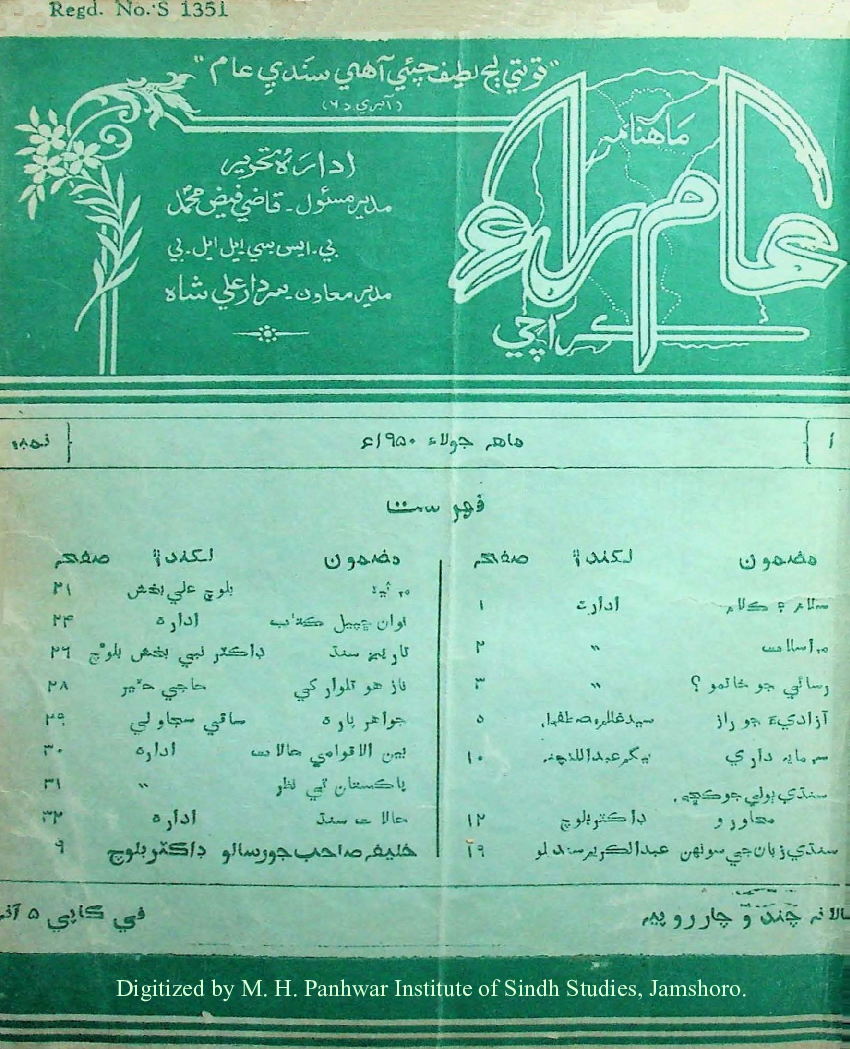 Regd. No. S 1351
"توتي پڄ لطيف چئي آهي سنڌي عام"
ماهنامه
عام راءِ
ڪراچي
اداره تحرير
مدير مسئول - قاضي فيض محمد
بي. ايس سي ايل ايل. بي
مدير معاون - سردار علي شاه
۱ ماهه جولاءِ ۱۹۵۰ع نمبر
فهرست
مضمون لکندڙ صفحه
سلام ۽ ڪلام اداره ۱
مراسلات " ۲
رسالي جو خاتمو ؟ " ۳
آزاديءَ جو راز سيد غلام مصطفيٰ ۵
سرمايه داري بيگم عبدالله چنه ۱۰
سنڌي ٻولي جو ڪجهه
محاورو ڊاڪٽر بلوچ ۱۲
سنڌي زبان جي سونهن عبدالڪريم سنديلو ۱۹
مضمون لکندڙ صفحه
بلوچ علي بخش ۲۱
نوان ڇپيل ڪتاب اداره ۲۴
تاريخ سنڌ ڊاڪٽر نبي بخش بلوچ ۲۶
ناز هو تلوار کي حاجي ۲۸
جواهر پاره ساقي سجاولي ۲۹
بين الاقوامي حالات اداره ۳۰
پاڪستان تي نظر " ۳۱
حالات سنڌ اداره ۳۲
خليفه صاحب جو رسالو ڊاڪٽر بلوچ ۹
سالانه چندو چار روپيه
في ڪاپي ۵ آنه
Digitized by M. H. Panhwar Institute of Sindh Studies, Jamshoro.